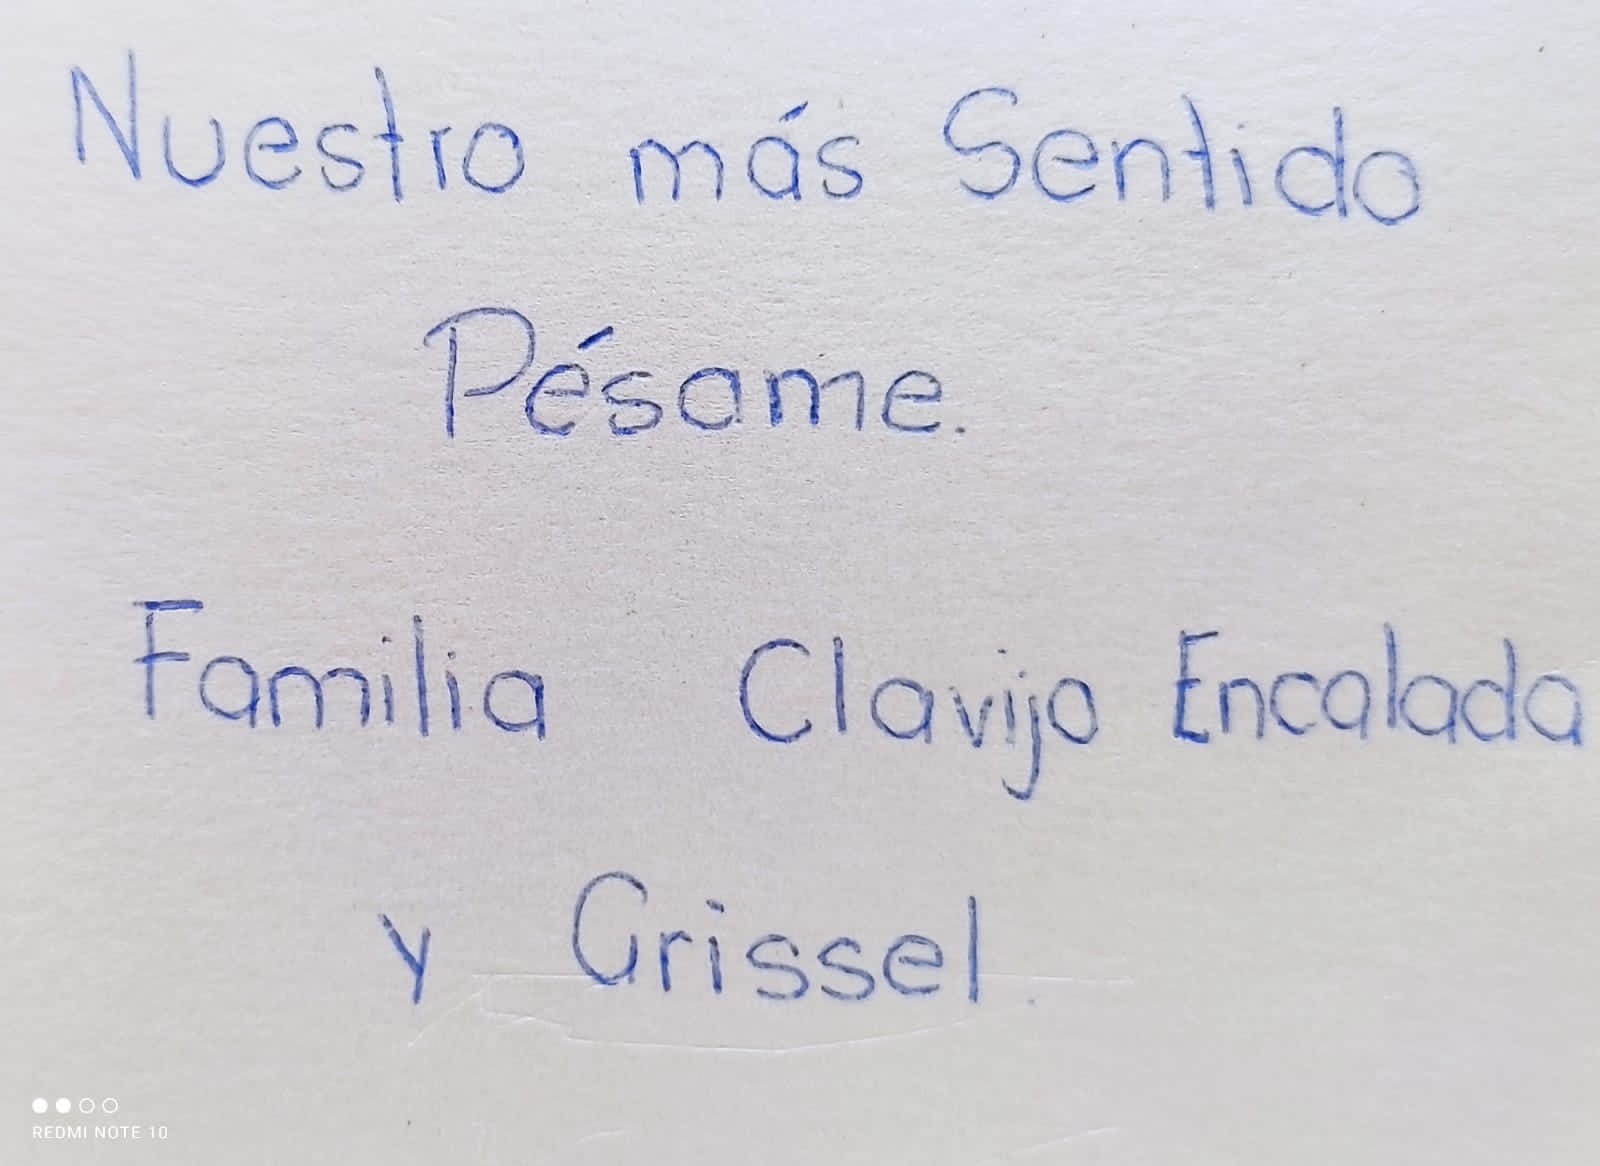 Nuestro más Sentido
Pésame.
Familia Clavijo Encalada
y Grissel.
REDMI NOTE 10